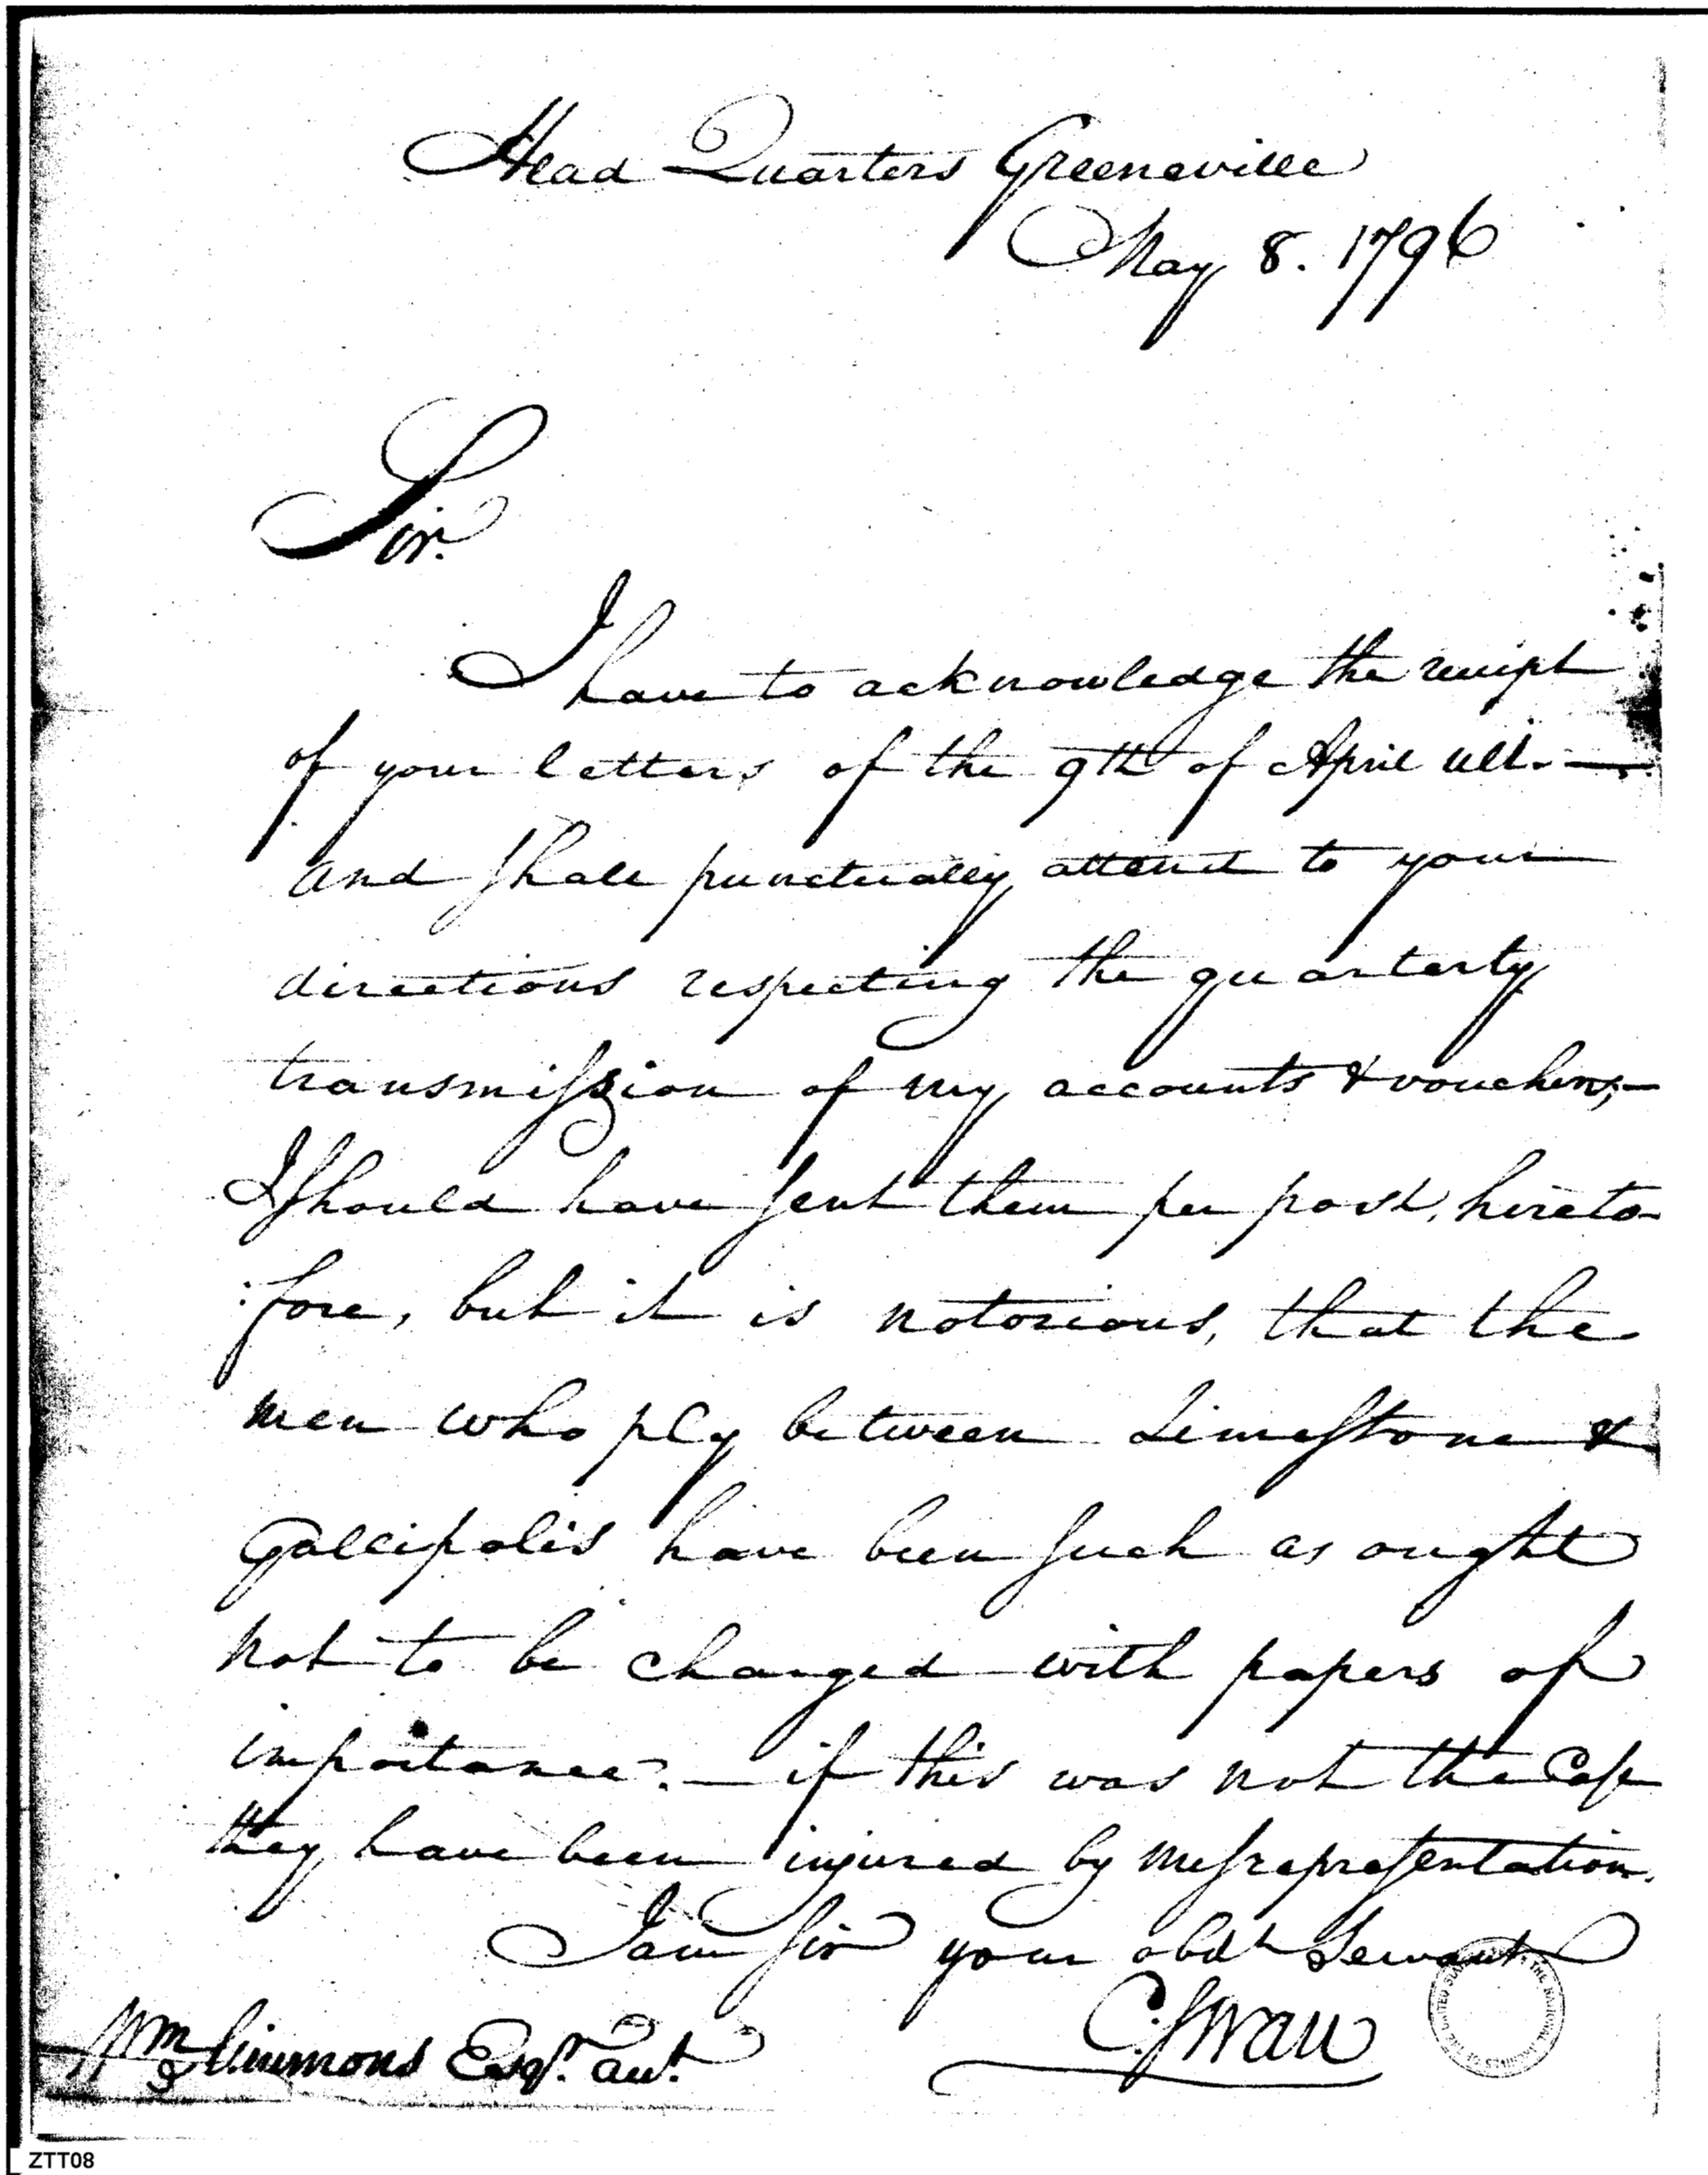 Head Quarters Greeneville
May 8. 1796
Sir.
I have to acknowledge the receipt
of your letters of the 9th of April ult. —
and shall punctually attend to your
directions respecting the quarterly
transmission of my accounts & vouchers; —
I should have sent them per post, hereto-
:fore, but it is notorious, that the
men who ply between Limestone &
Gallipolis have been such as ought
not to be charged with papers of
importance. — if this was not the case
they have been injured by misrepresentation.
I am sir your obdt Servant
C. Swan
Wm Simmons Esqr. acct.
ZTT08